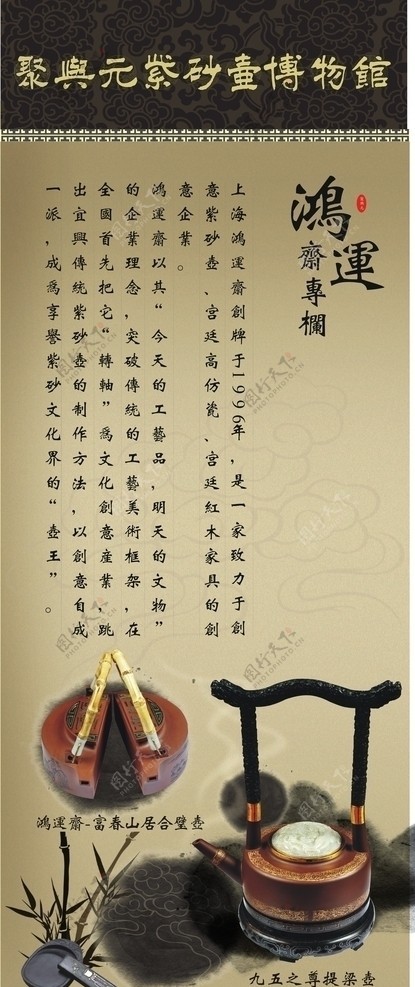 聚與元紫砂壷博物館
鴻運
齋專欄
上海鴻運齋創牌于1996年，是一家致力于創
意紫砂壺、宫廷高仿瓷、宫廷紅木家具的創
意企業。
鴻運齋以其“今天的工藝品，明天的文物”
的企業理念，突破傳統的工藝美術框架，在
全國首先把它“轉軸”爲文化創意産業，跳
出宜興傳統紫砂壺的制作方法，以創意自成
一派，成爲享譽紫砂文化界的“壺王”。
鴻運齋-富春山居合璧壺
九五之尊提梁壺